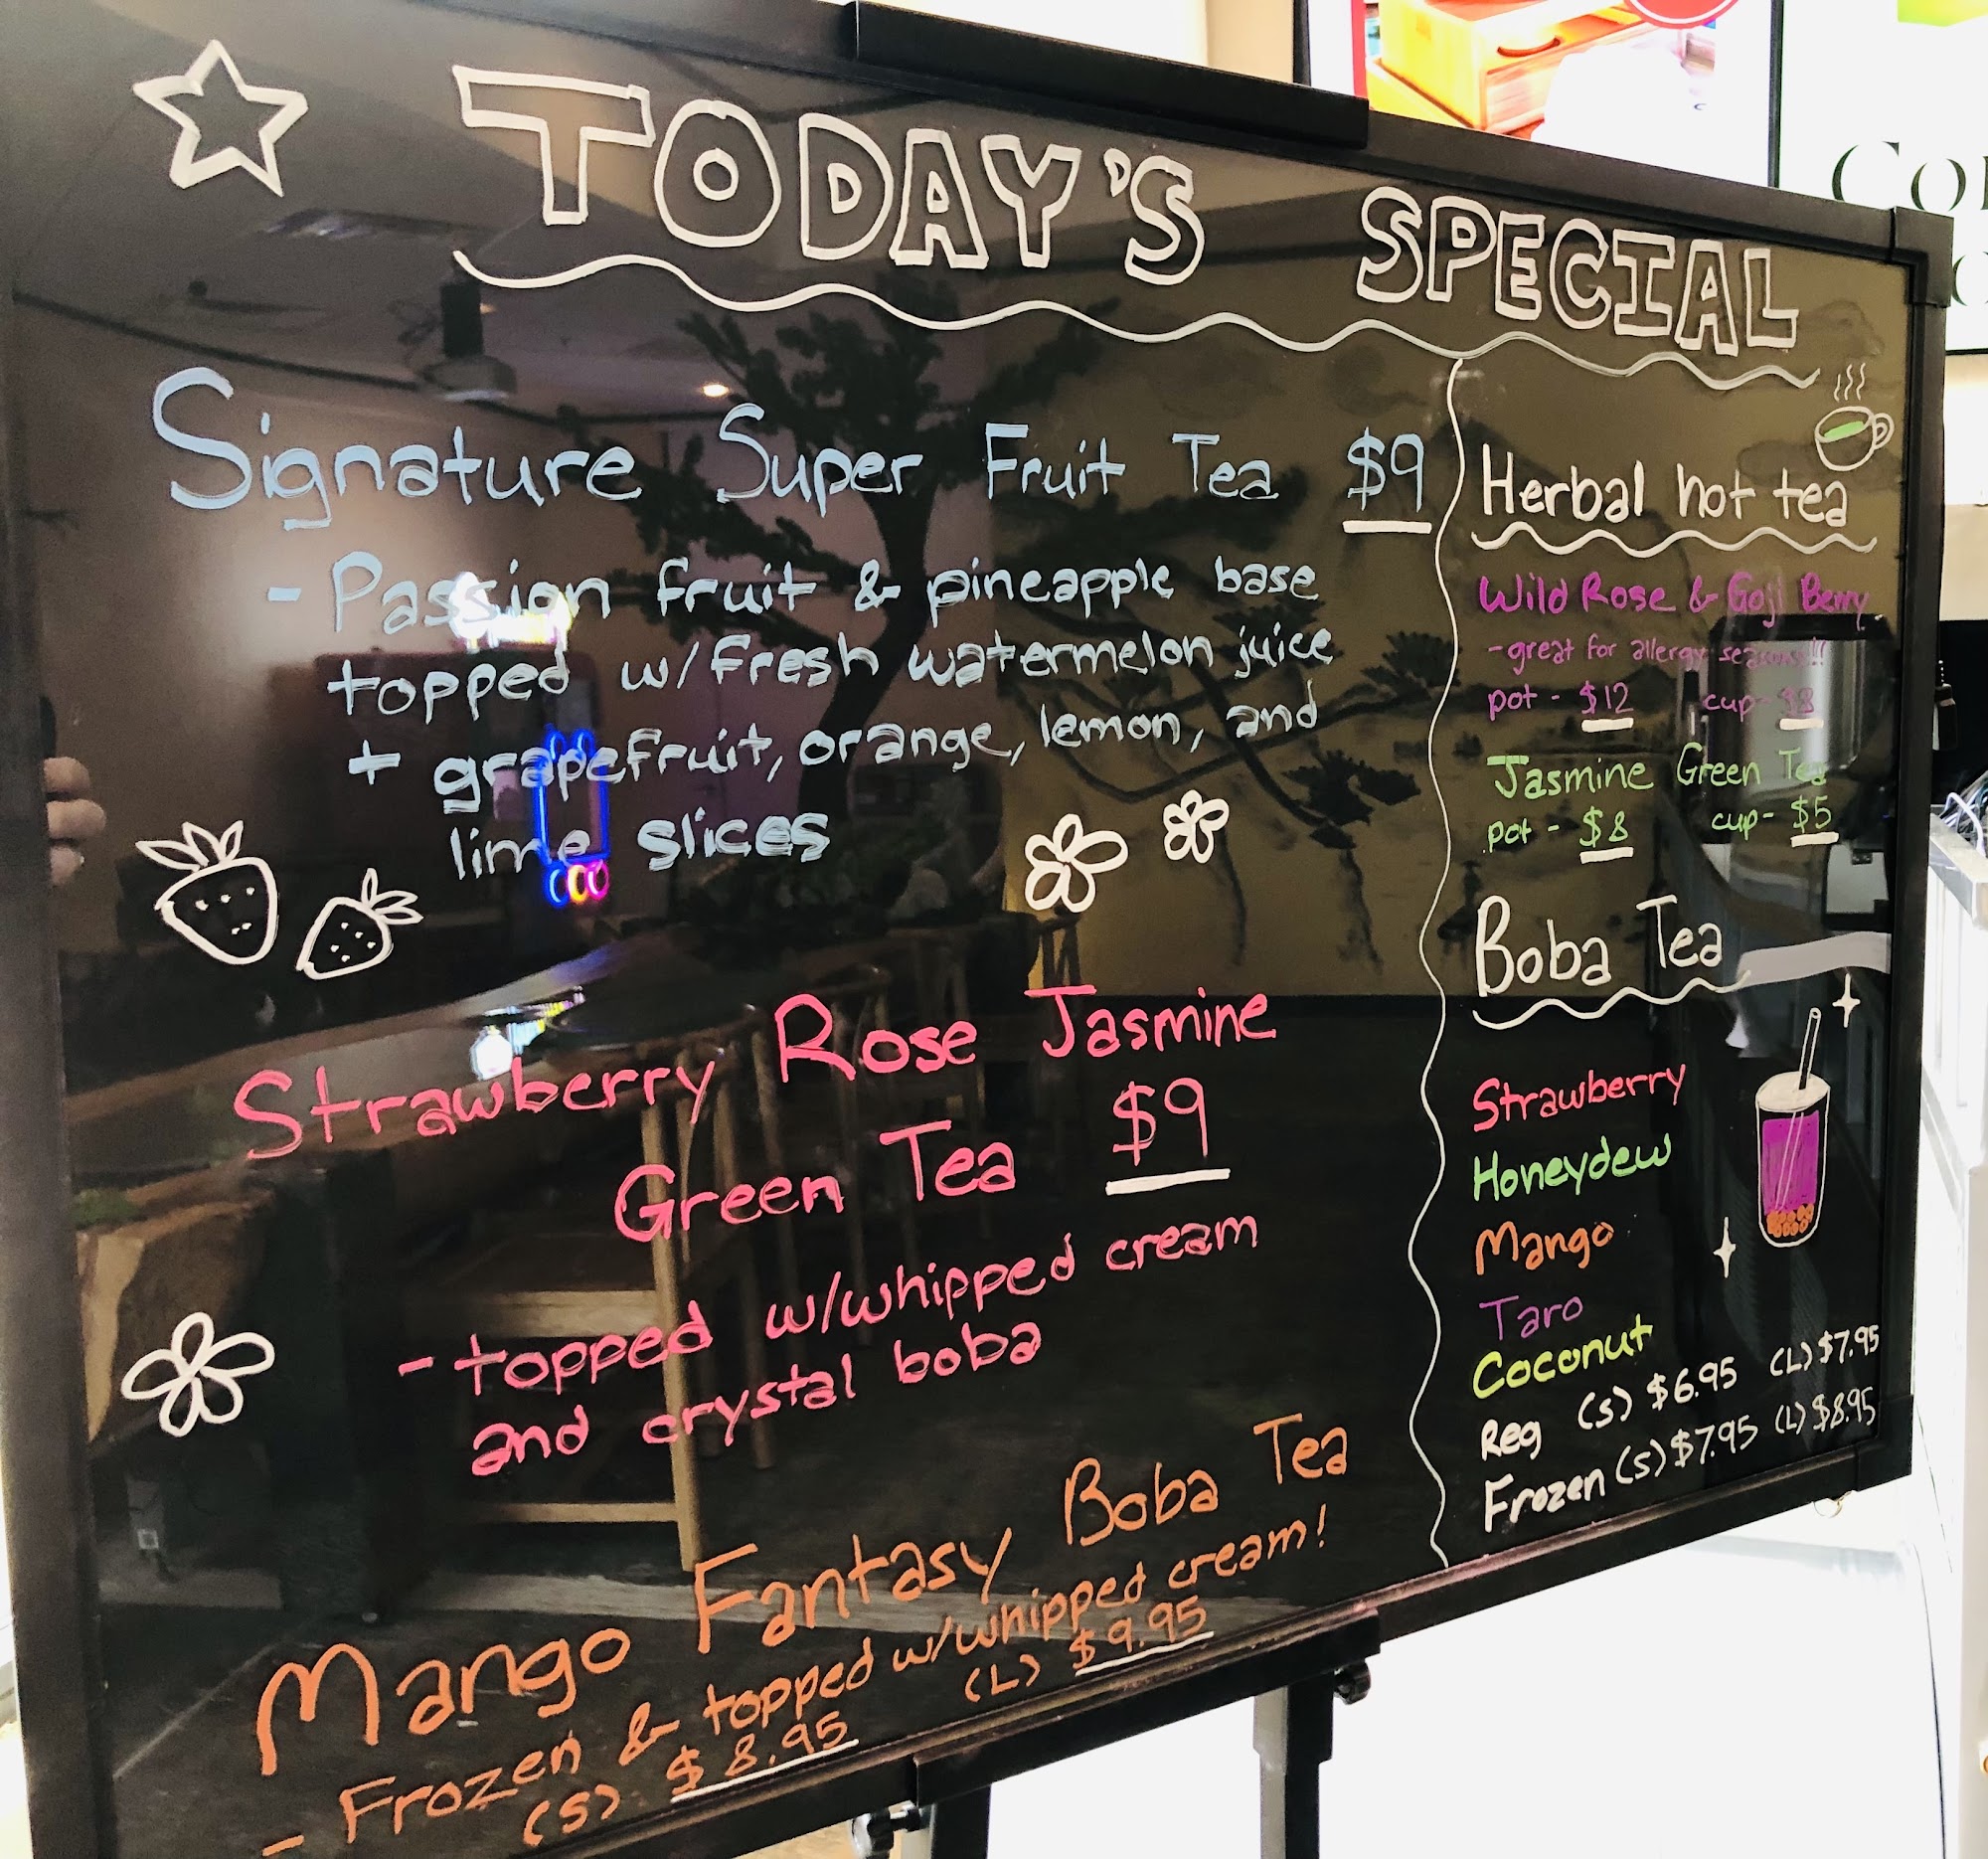 TODAY'S SPECIAL
Signature Super Fruit Tea $9
- Passion fruit & pineapple base
topped w/fresh watermelon juice
+ grapefruit, orange, lemon, and
lime slices
Strawberry Rose Jasmine
Green Tea $9
- topped w/whipped cream
and crystal boba
Mango Fantasy Boba Tea
- Frozen & topped w/whipped cream!
(S) $8.95 (L) $9.95
Herbal hot tea
Wild Rose & Goji Berry
- great for allergy seasons!!!
pot - $12 cup-
Jasmine Green Tea
pot - $8 cup - $5
Boba Tea
Strawberry
Honeydew
Mango
Taro
Coconut
Reg (S) $6.95 (L) $7.95
Frozen (S) $7.95 (L) $8.95